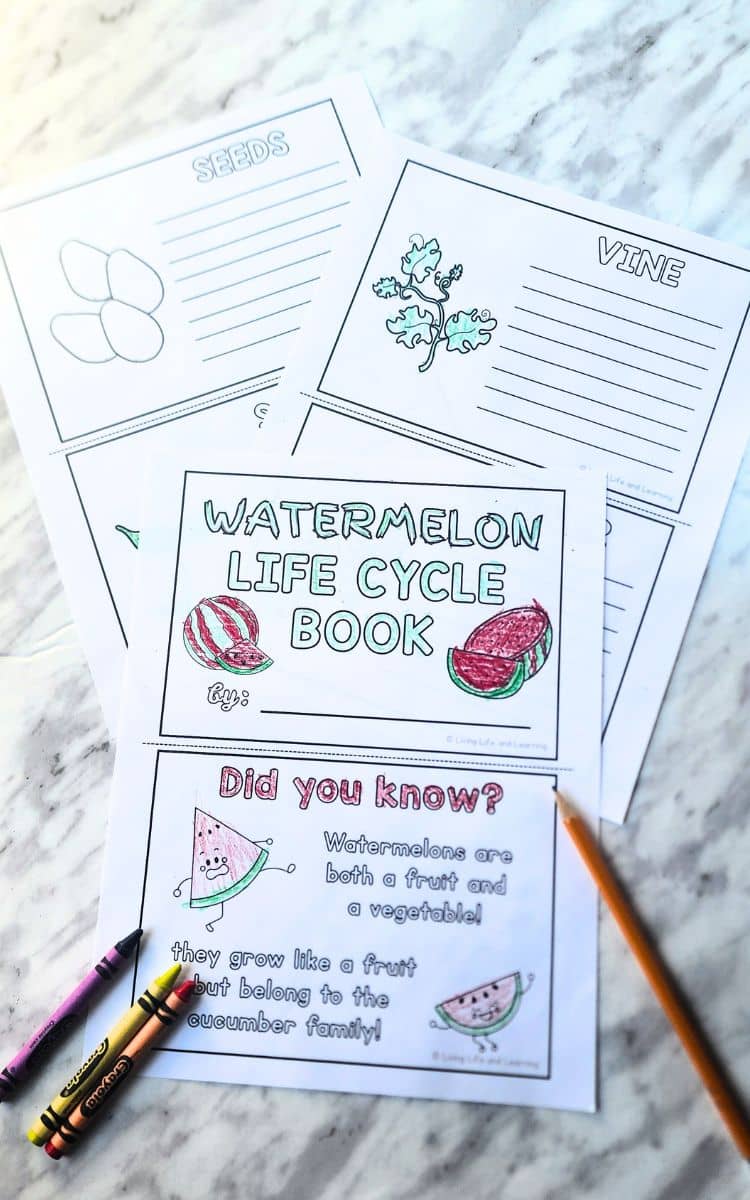 SEEDS
VINE
Life and Learning
WATERMELON
LIFE CYCLE
BOOK
by:
© Living Life and Learning
Did you know?
Watermelons are
both a fruit and
a vegetable!
they grow like a fruit
but belong to the
cucumber family!
© Living Life and Learning
Crayola
Crayola